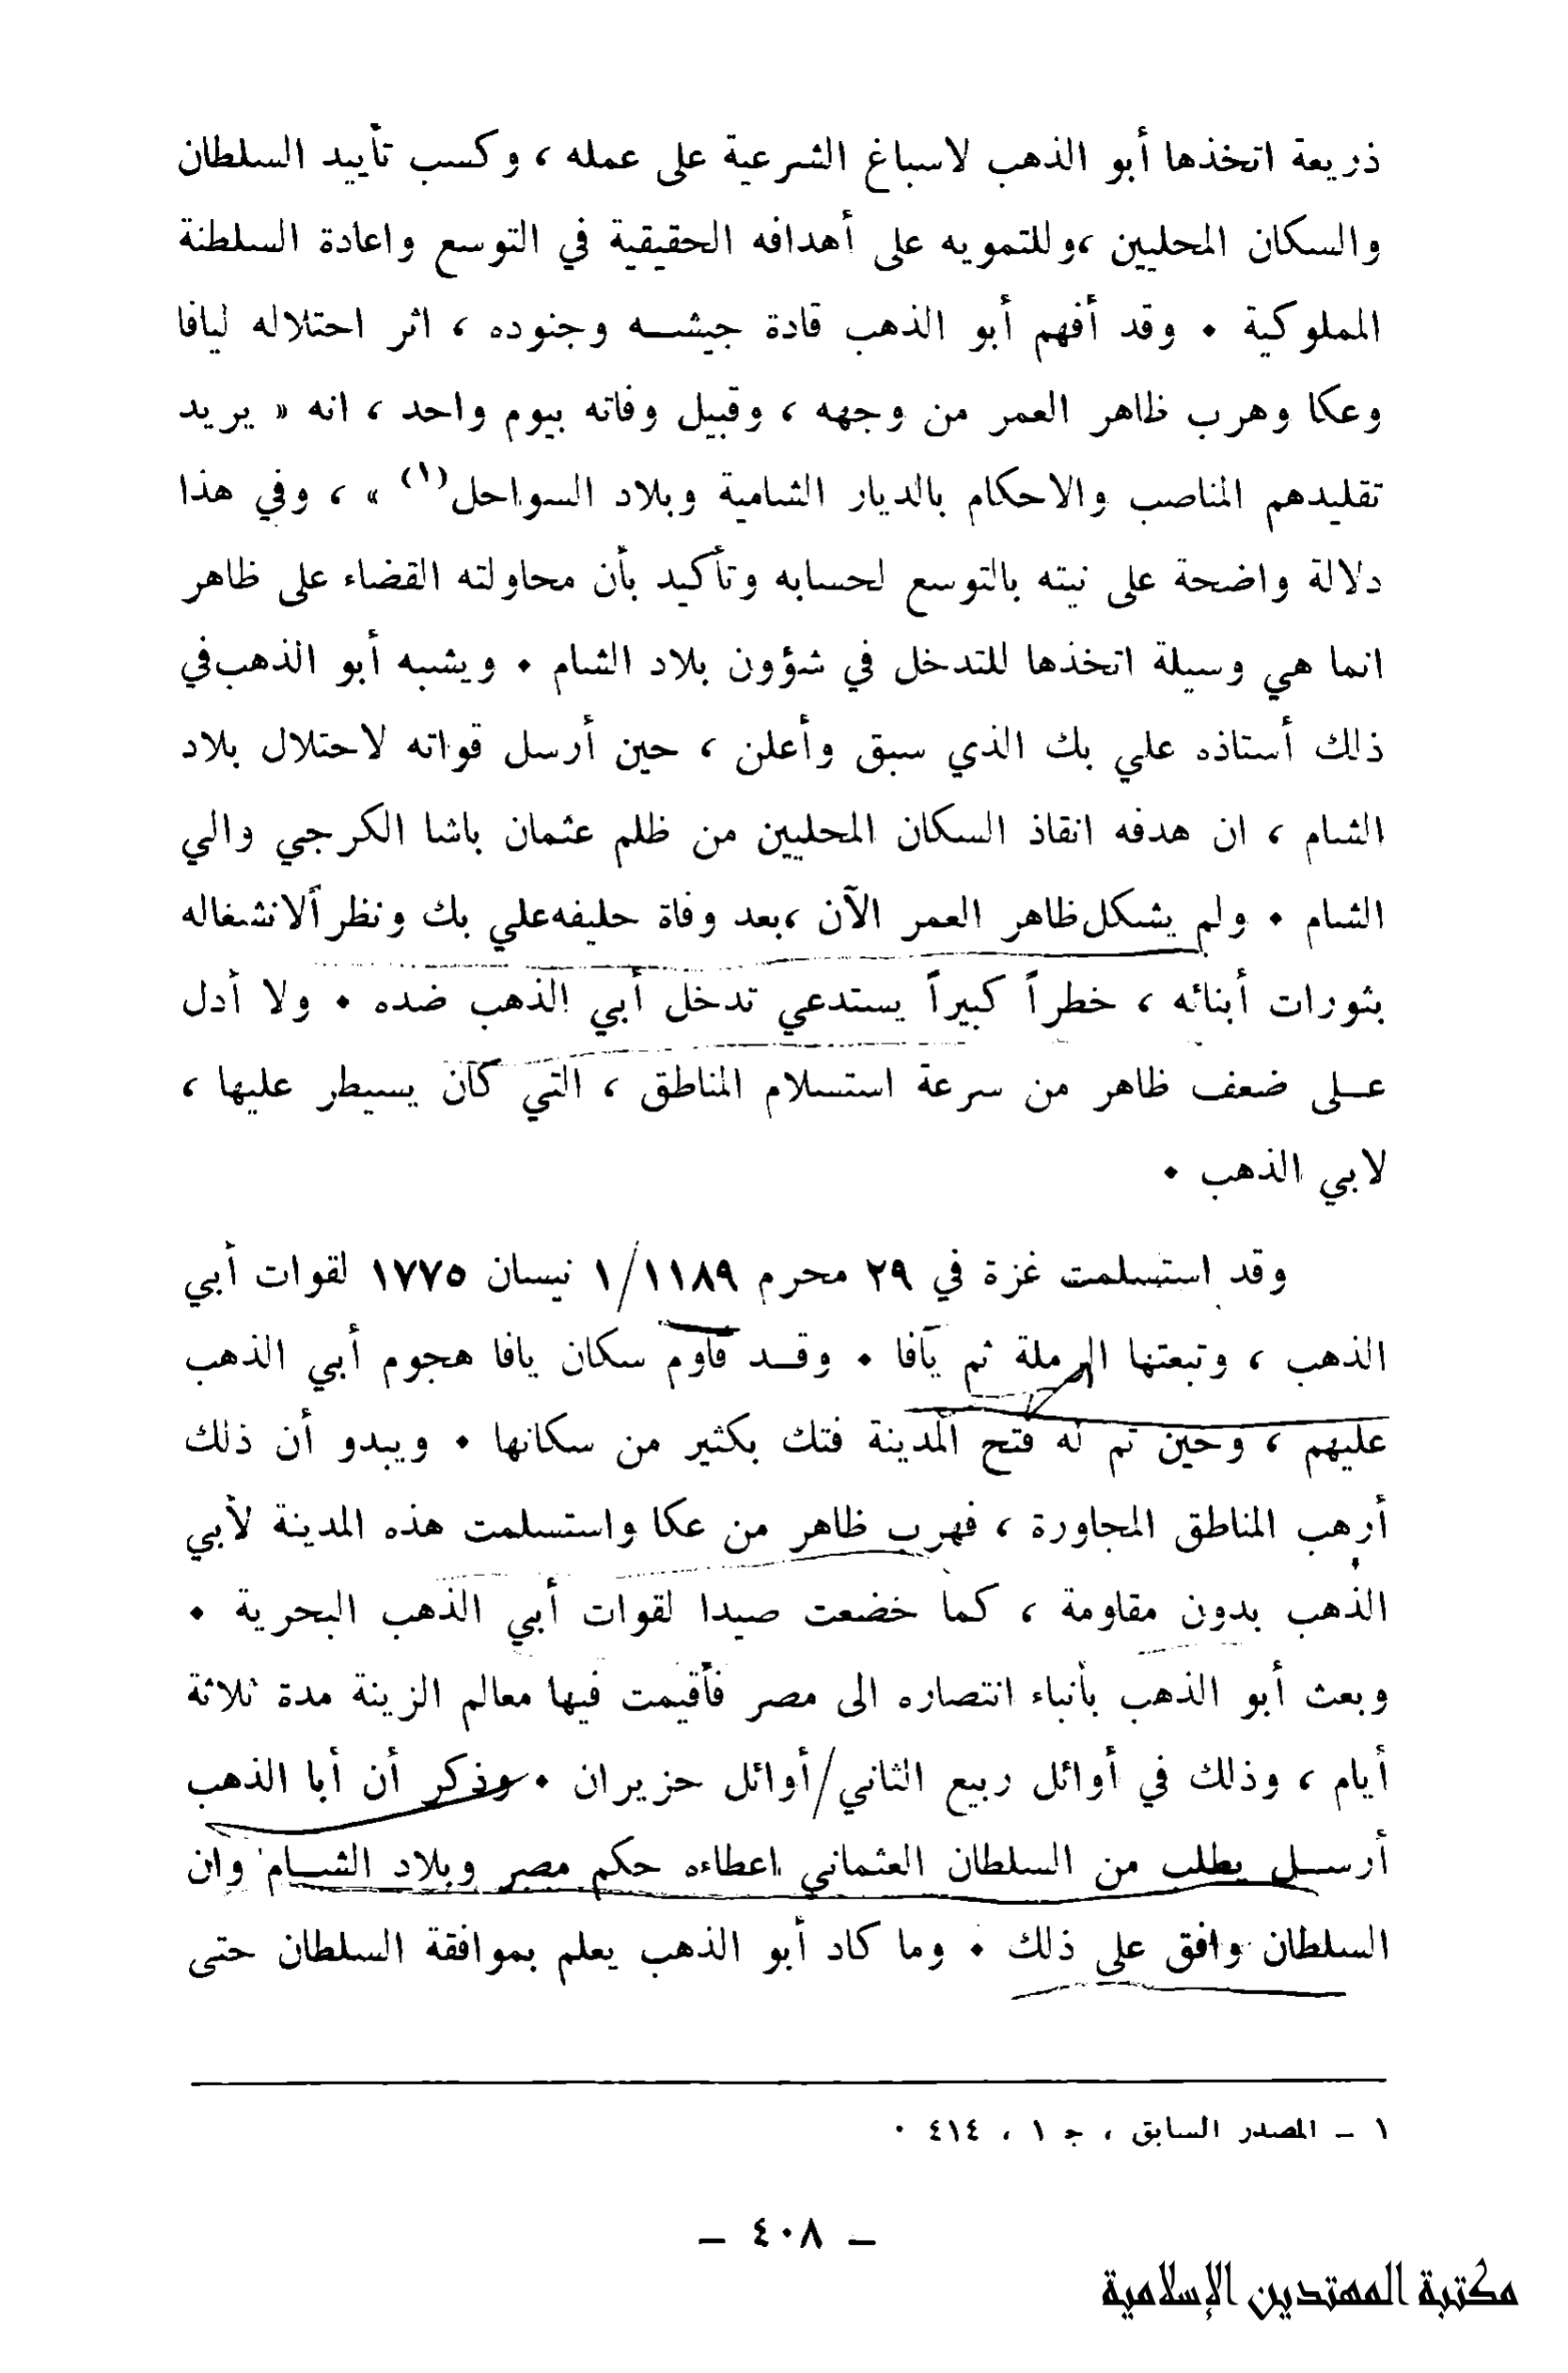 ذريعة اتخذها أبو الذهب لاسباغ الشرعية على عمله ، وكسب تأييد السلطان
والسكان المحليين ،وللتمويه على أهدافه الحقيقية في التوسع واعادة السلطنة
المملوكية . وقد أفهم أبو الذهب قادة جيشه وجنوده ، اثر احتلاله ليافا
وعكا وهرب ظاهر العمر من وجهه ، وقبيل وفاته بيوم واحد ، انه « يريد
تقليدهم المناصب والاحكام بالديار الشامية وبلاد السواحل(١) » ، وفي هذا
دلالة واضحة على نيته بالتوسع لحسابه وتأكيد بأن محاولته القضاء على ظاهر
انما هي وسيلة اتخذها للتدخل في شؤون بلاد الشام . ويشبه أبو الذهب في
ذلك أستاذه علي بك الذي سبق وأعلن ، حين أرسل قواته لاحتلال بلاد
الشام ، ان هدفه انقاذ السكان المحليين من ظلم عثمان باشا الكرجي والي
الشام . ولم يشكل ظاهر العمر الآن ،بعد وفاة حليفه علي بك ونظرآ لانشغاله
بثورات أبنائه ، خطراً كبيراً يستدعي تدخل أبي الذهب ضده . ولا أدل
على ضعف ظاهر من سرعة استسلام المناطق ، التي كان يسيطر عليها ،
لابي الذهب .
وقد استسلمت غزة في ٢٩ محرم ١١٨٩/١ نيسان ١٧٧٥ لقوات أبي
الذهب ، وتبعتها الرملة ثم يافا . وقد قاوم سكان يافا هجوم أبي الذهب
عليهم ، وحين تم له فتح المدينة فتك بكثير من سكانها . ويبدو أن ذلك
أرهب المناطق المجاورة ، فهرب ظاهر من عكا واستسلمت هذه المدينة لأبي
الذهب بدون مقاومة ، كما خضعت صيدا لقوات أبي الذهب البحرية .
وبعث أبو الذهب بأنباء انتصاره الى مصر فأقيمت فيها معالم الزينة مدة ثلاثة
أيام ، وذلك في أوائل ربيع الثاني/أوائل حزيران . وذكر أن أبا الذهب
أرسل يطلب من السلطان العثماني اعطاءه حكم مصر وبلاد الشام وان
السلطان وافق على ذلك . وما كاد أبو الذهب يعلم بموافقة السلطان حتى
١ – المصدر السابق ، ج ١ ، ٤١٤ .
– ٤٠٨ –
مكتبة المهتدين الإسلامية